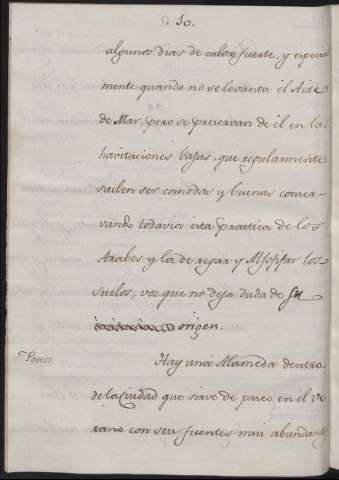 10.
algunos dias de calor fuerte, y especial
mente quando no se levanta el Aire
de Mar, pero se precavan de él en las
havitaciones bajas, que regularmente
suelen ser comodas y buenas conser-
vando todavia esta practica de los
Arabes y la de regar y Aljofifar los
suelos, voz que no deja duda de su
origen.
Paseos
Hay una Alameda dentro
de la Ciudad que sirve de paseo en el Ve
rano con seis fuentes mui abundantes